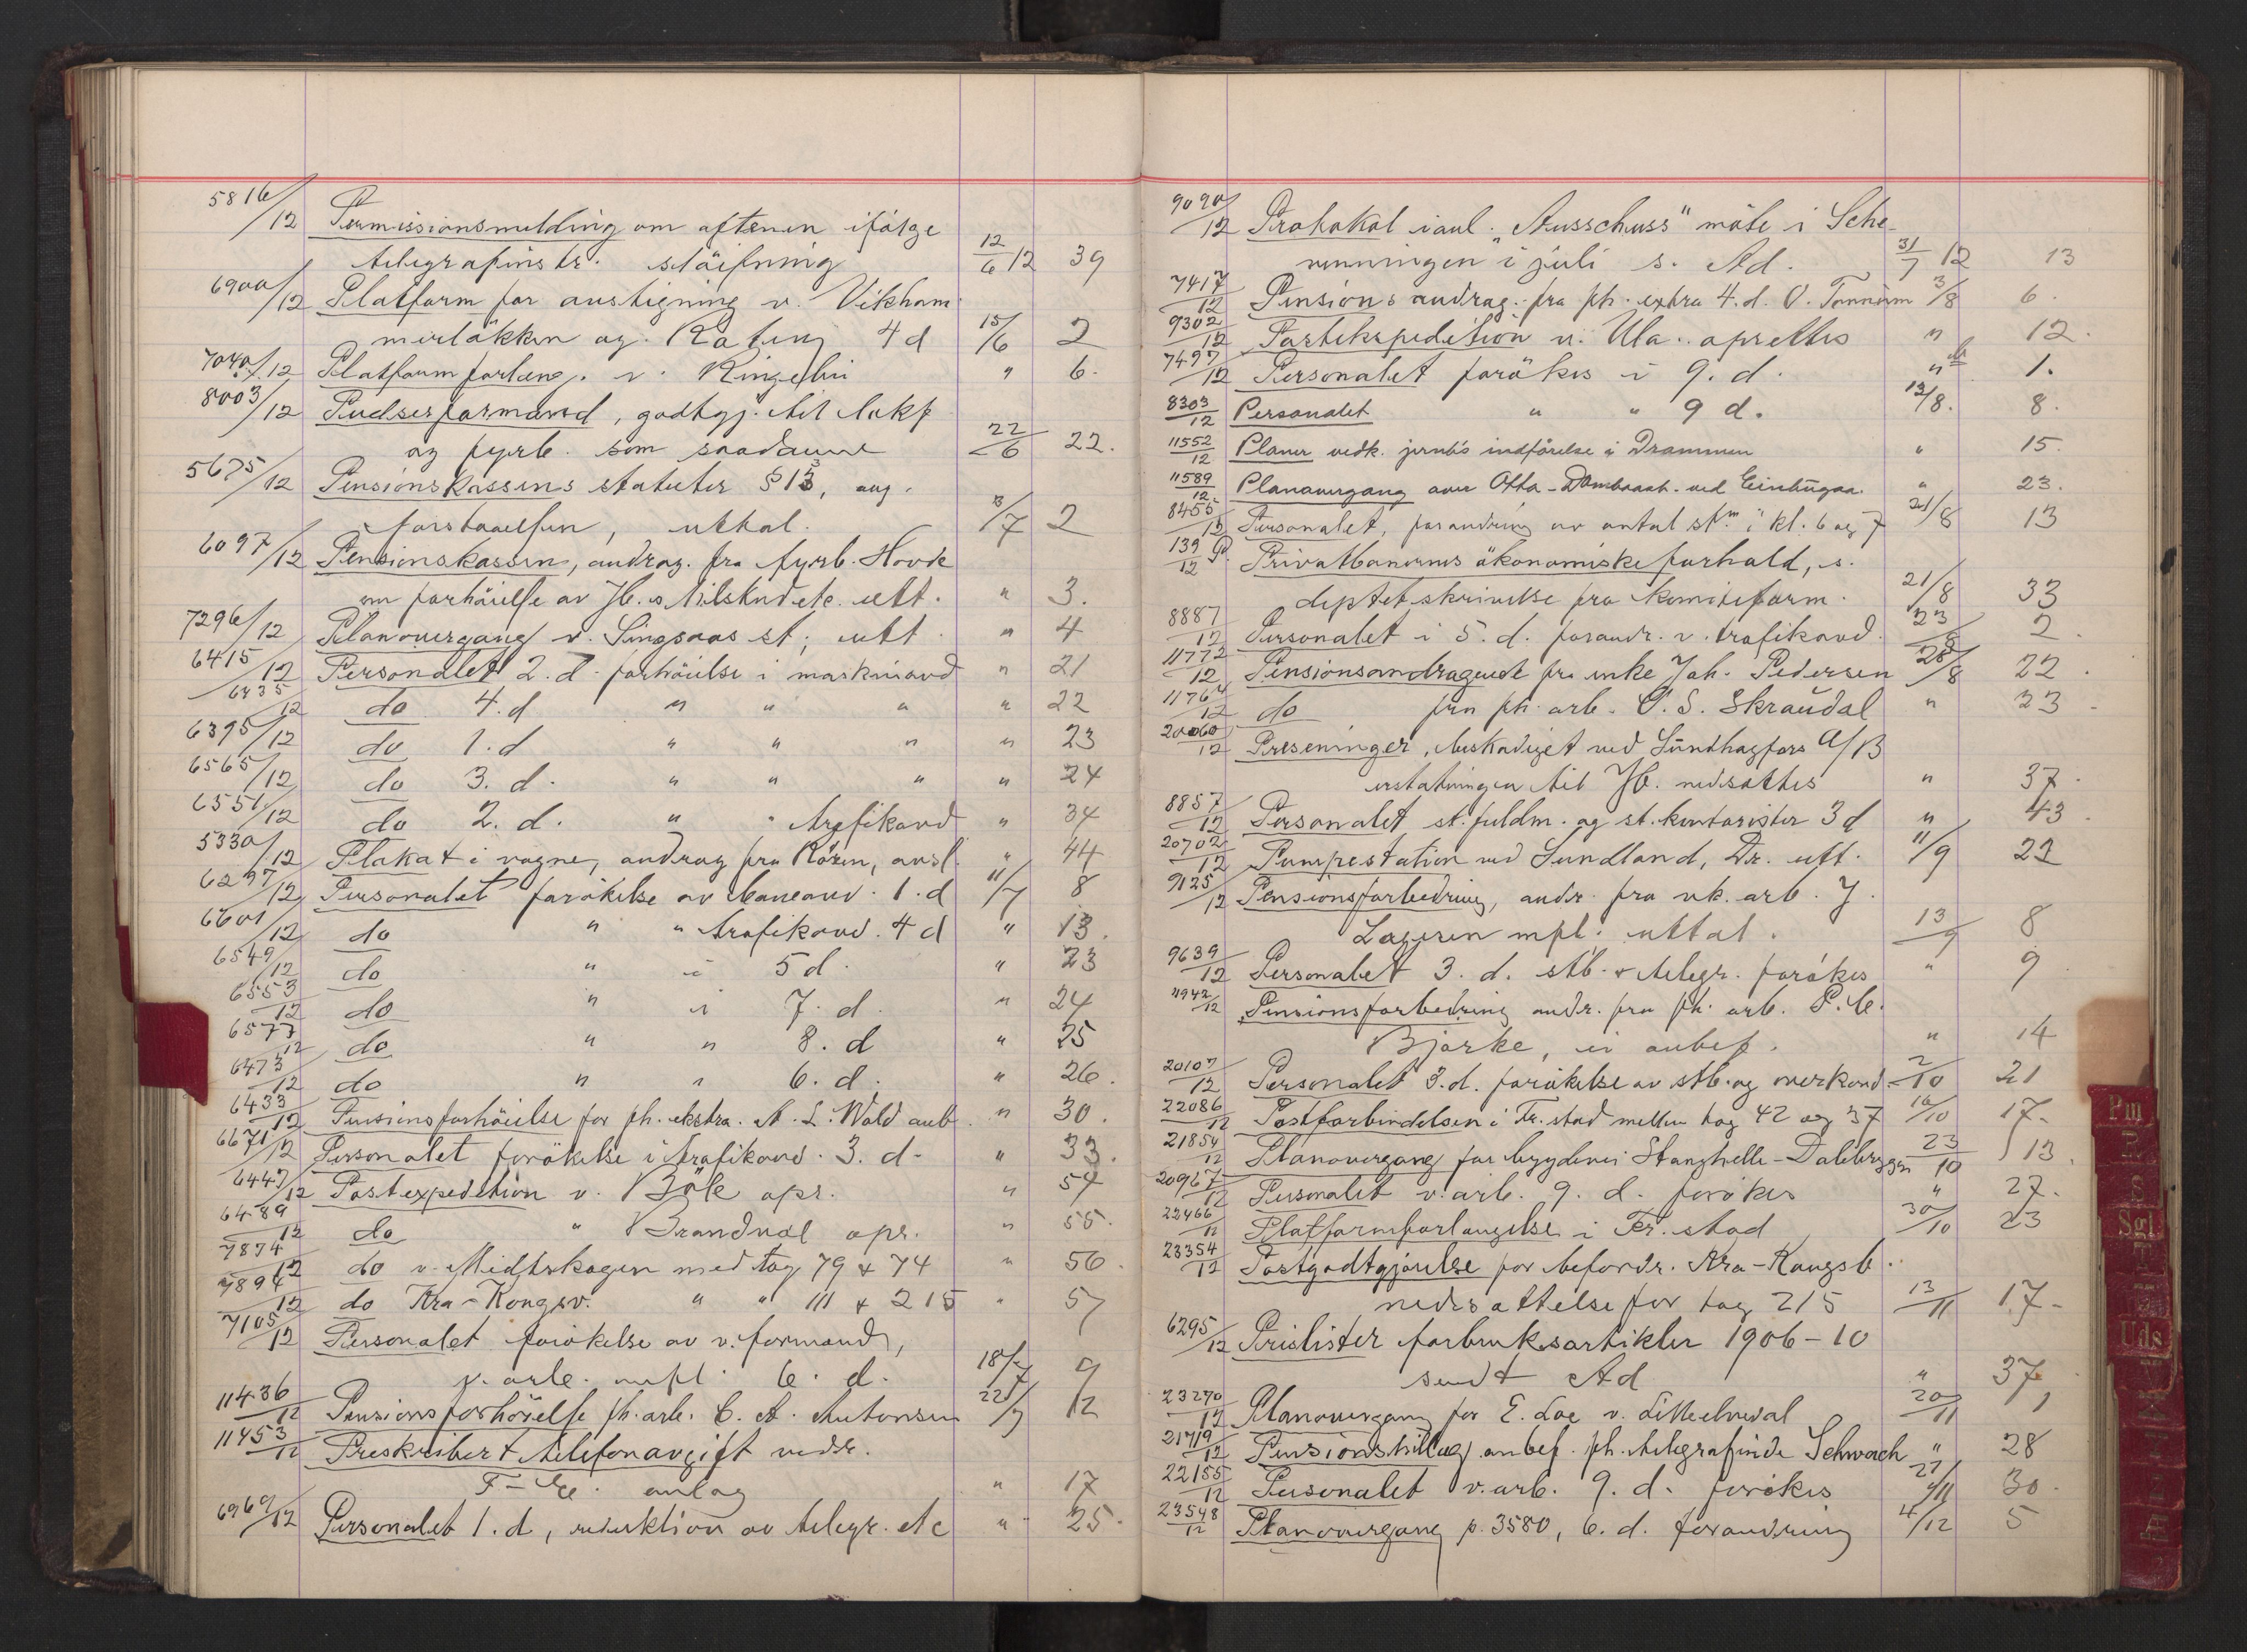 5816/12 Permissionsmelding om aftenen ifølge
telegrafinstr. sløifning 12/6 12 39
6900/12 Platform for avstigning v. Vikham-
merløkken og Ra 4 d 15/6 2
7040/12 Platformforlæng. v. Ringebu " 6.
8003/12 Pudserformænd, godtgj. til lokf
og fyrb. som saadanne 22/6 22.
5675/12 Pensionskassens statuter § 13, ang.
forstaaelsen, uttal. /7 2
6097/12 Pensionskassen, andrag. fra fyrb. Hovde
om forhøielse av Jb.s tilskud etc. utt. " 3.
7296/12 Planovergang v. Singsaas st; utt. " 4
6415/12 Personalet 2. d. forhøielse i maskinavd " 21
6435/12 do 4. d " " " " 22
6395/12 do 1. d " " " " 23
6565/12 do 3. d. " " " " 24
6551/12 do 2. d. " " trafikavd " 34
5330/12 Plakat i vogne, andrag fra Røren, avsl. " 44
6297/12 Personalet forøkelse av baneavd. 1. d 11/7 8
6601/12 do " " trafikavd. 4 d " 13.
6549/12 do " i 5 d. " 23
6553/12 do " i 7. d. " 24
6577/12 do " " 8. d " 25
6473/12 do " " 6. d. " 26.
6433/12 Pensionsforhøielse for fh. ekstra. A. L. Wold anb. " 30.
6671/12 Personalet forøkelse i trafikavd. 3. d. " 33.
6447/12 Postexpedition v. Bøle opr. " 54
6489/12 do " Brandval opr. " 55.
7874/12 do v. Midtskogen med tog 79 & 74 " 56.
7894/12 do Kra-Kongsv. " " 111 & 215 " 57
7105/12 Personalet forøkelse av v. formand,
v. arb. mfl. 6. d. 18/7 9
11436/12 Pensionsforhøielse fh. arb. C. A. Antonsen 22/7 12
11453/12 Preskribert telefonavgift vedr.
anlæg " 17
6969/12 Personalet 1. d, reduktion av telegr. etc " 25.
9090/12 Protokol i anl. "Ausschuss" møte i Sche-
venningen i juli s. Ad. 31/7 12 13
7417/12 Pensionsandrag. fra fh. extra 4. d. O. 3/8 6.
9302/12 Postekspedition v. Ula. oprettes " 12.
7497/12 Personalet forøkes i 9. d. " 1.
8303/12 Personalet " " 9 d. 12/8. 8.
11552/12 Planer vedk. jernb's indførelse i Drammen " 15.
11589/12 Planovergang over Otta-Dombaas b. ved Einbugaa. " 23.
8455/12 Personalet, forandring av antal stm i kl. 6 og 7 21/8 13
139/12 P. Privatbanernes økonomiske forhold, s.
deptetskrivelse fra komiteform. 21/8 33
8887/12 Personalet i 5. d. forandr. v. trafikavd. 23/8 2.
11772/12 Pensionsandragende fra enke Joh. Pedersen 28/8 22.
11764/12 do fra fh. arb. O. S. Skraudal " 23.
20060/12 Preseninger, beskadiget ved Sundhagfors A/B
erstatningen til Jb. nedsættes " 37.
8857/12 Personalet st. fuldm. og st. kontorister 3 d " 43.
20702/12 Pumpestation ved Sundland, Dr. utt. 11/9 22
9125/12 Pensionsforbedring, andr. fra vk. arb. J.
Lagesen mfl. uttal. 13/9 8
9639/12 Personalet 3. d. stb. & telegr. forøkes " 9
11942/12 Pensionsforbedring andr. fra fh. arb. P. C.
Bjørke, ei anbef. " 14
20107/12 Personalet 3. d. forøkelse av stb. og overkond. 2/10 21
22086/12 Postforbindelsen i Fr. stad mellem tog 42 og 37 10/10 17.
21854/12 Planovergang for bygdevei Stanghelle-Dalebryggen 23/10 13.
20967/12 Personalet v. arb. 9. d. forøkes " 27.
22466/12 Platformforlængelse i Fr. stad 30/10 23
23354/12 Postgodtgjørelse for befordr. Kra-Kongsb.
nedsættelse for tog 215 13/11 17.
6295/12 Prislister forbruksartikler 1906-10
sendt Ad " 37
23270/12 Planovergang for E. Loe v. 20/11 1
21719/12 Pensionstillæg anbef. fh. telegrafinde Schwach " 28
22155/12 Personalet v. arb. 9. d. forøkes 27/11 30.
23548/12 Planovergang p. 3580, 6. d. forandring 4/12 5
Pm
S
Sgl
T
Uds
Æ